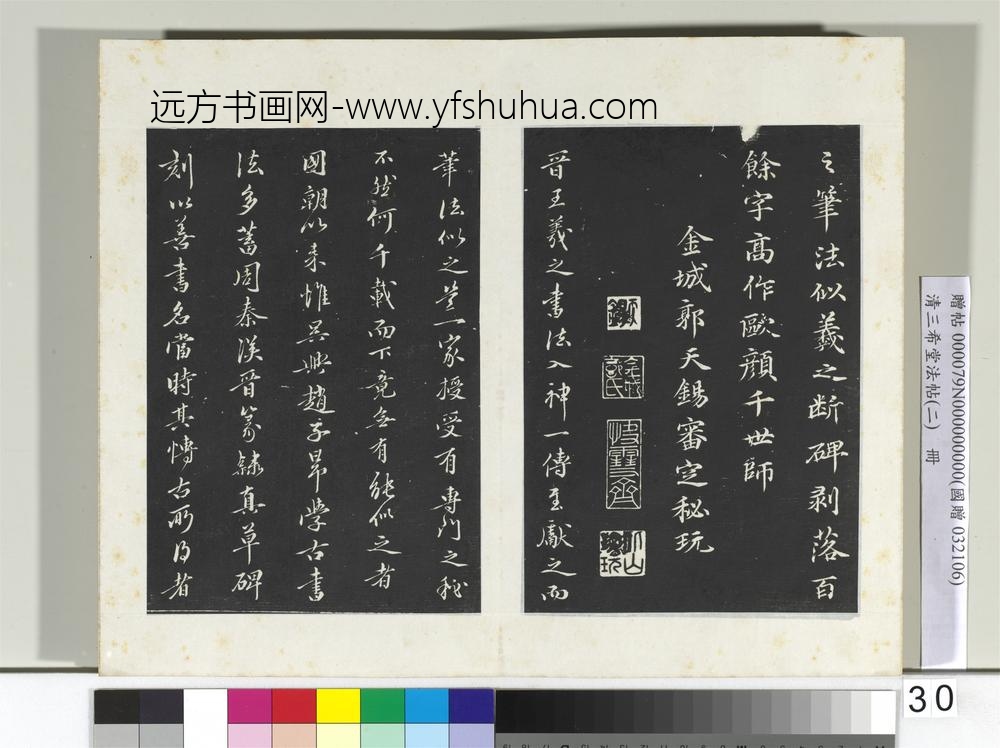 远方书画网-www.yfshuhua.com
之筆法似羲之断碑剥落百
餘字高作歐顔千世師
金城郭天錫審定秘玩
晋王羲之書法入神一傳至獻之而
筆法似之豈一家授受有專門之秘
不然何千載而下竟無有能似之者
國朝以来惟吴興趙子昂學古書
法多蓄周秦漢晋篆隸真草碑
刻以善書名當時其慱古所得者
贈帖 000079N000000000(國贈 032106)
清三希堂法帖(二) 冊
30